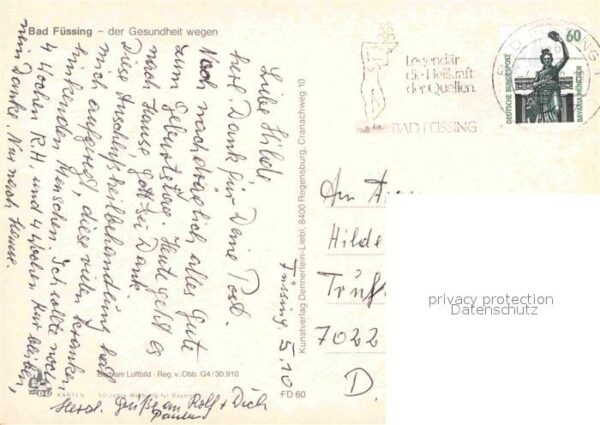 Bad Füssing – der Gesundheit wegen
Füssing, 5.10
Liebe Hilde
herzl. Dank für Deine Post.
Noch nachträglich alles Gute
zum Geburtstag. Heute geht es
nach Hause gott sei Dank
Diese Anschlußheilbehandlung hat
mich aufgeregt, diese vielen kranken,
hinkenden Menschen. Ich sollte noch
4 Wochen R.H und 4 Wochen Kur bleiben,
nein Danke. Nur nach Hause.
Herzl. Grüße an Rolf + Dich
Bertram Luftbild · Reg. v. Obb. G4/30.910
KARTEN 50 Jahre Werbung für Bayern
FD 60
Kunstverlag Dennerlein-Liebl, 8400 Regensburg, Cranachweg 10
Legendär
die Heilkraft
der Quellen.
BAD FÜSSING
60
DEUTSCHE BUNDESPOST
BAVARIA MÜNCHEN
Hilde
7022
D.
privacy protection
Datenschutz